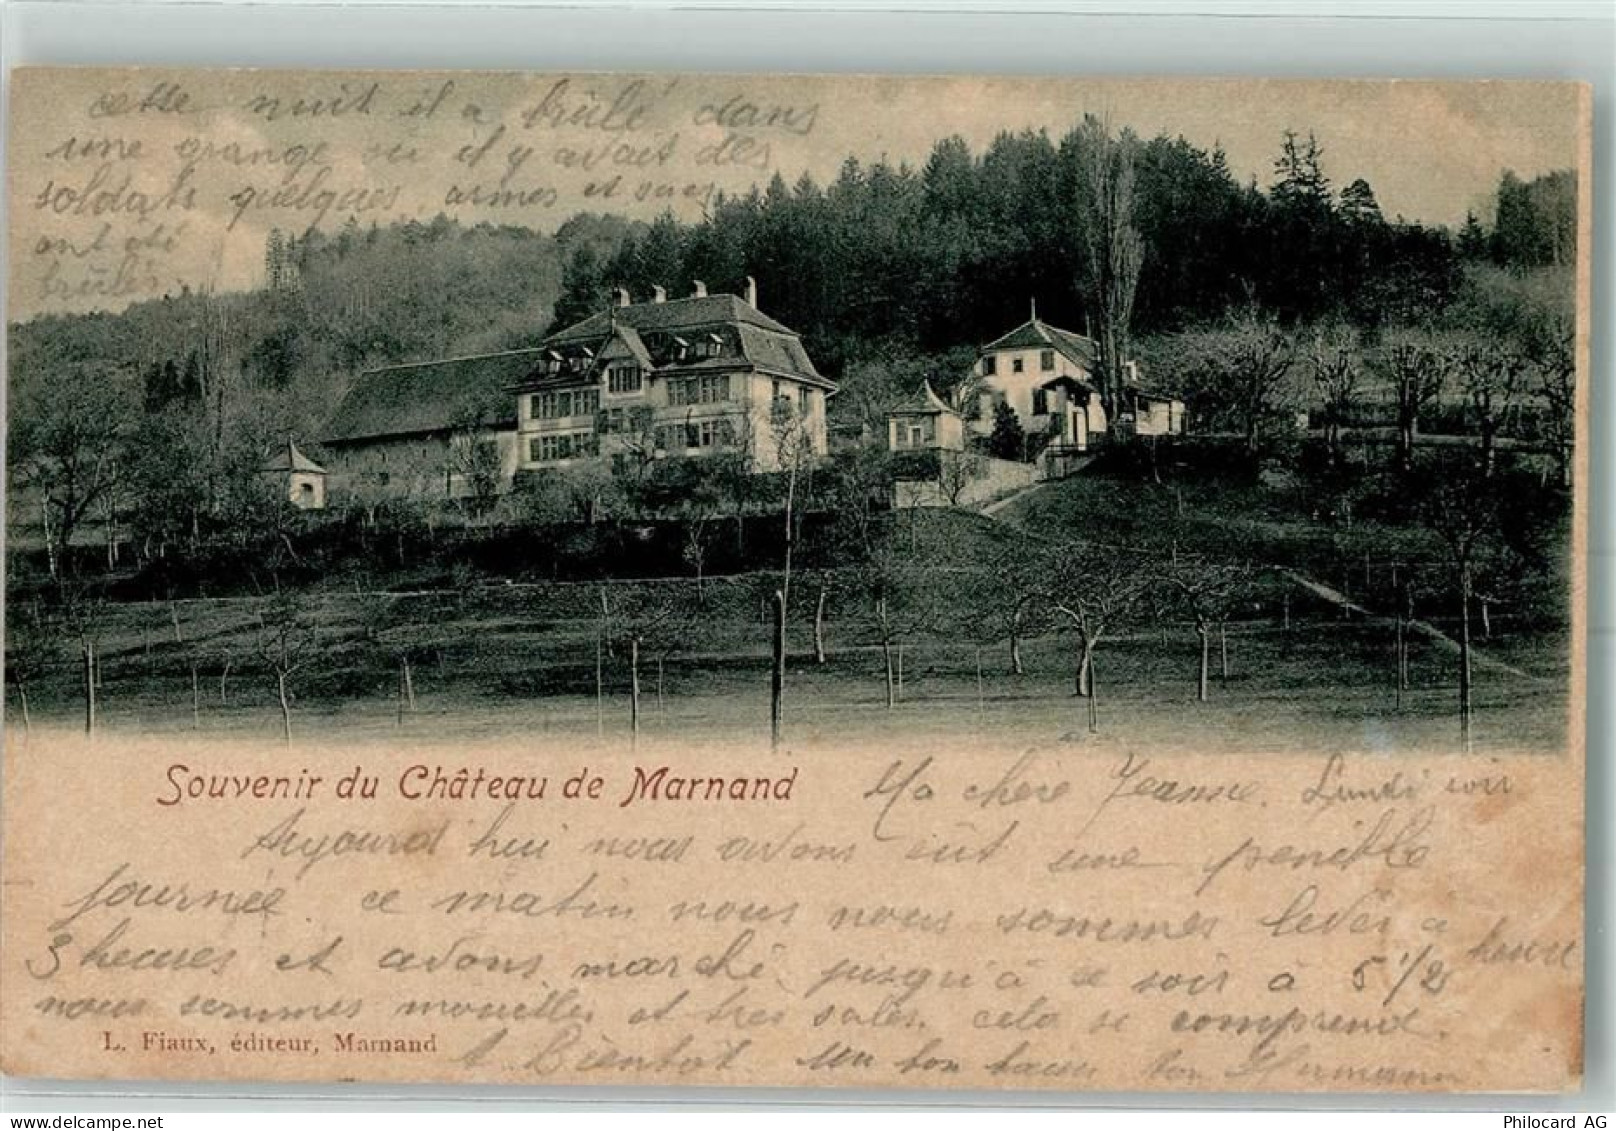 cette nuit il a brûlé dans
une grange où il y avait des
soldats quelques armes et sacs
ont été
brûlés
Souvenir du Château de Marnand
Ma chère Jeanne. Lundi soir
Aujourd'hui nous avons eût une penible
journée. ce matin nous nous sommes levés à
3 heures et avons marché jusqu'à ce soir à 5 1/2 heure
nous sommes mouillés et tres sales. cela se comprend.
L. Fiaux, éditeur, Marnand
A Bientôt Un bon ton Hermann
Philocard AG